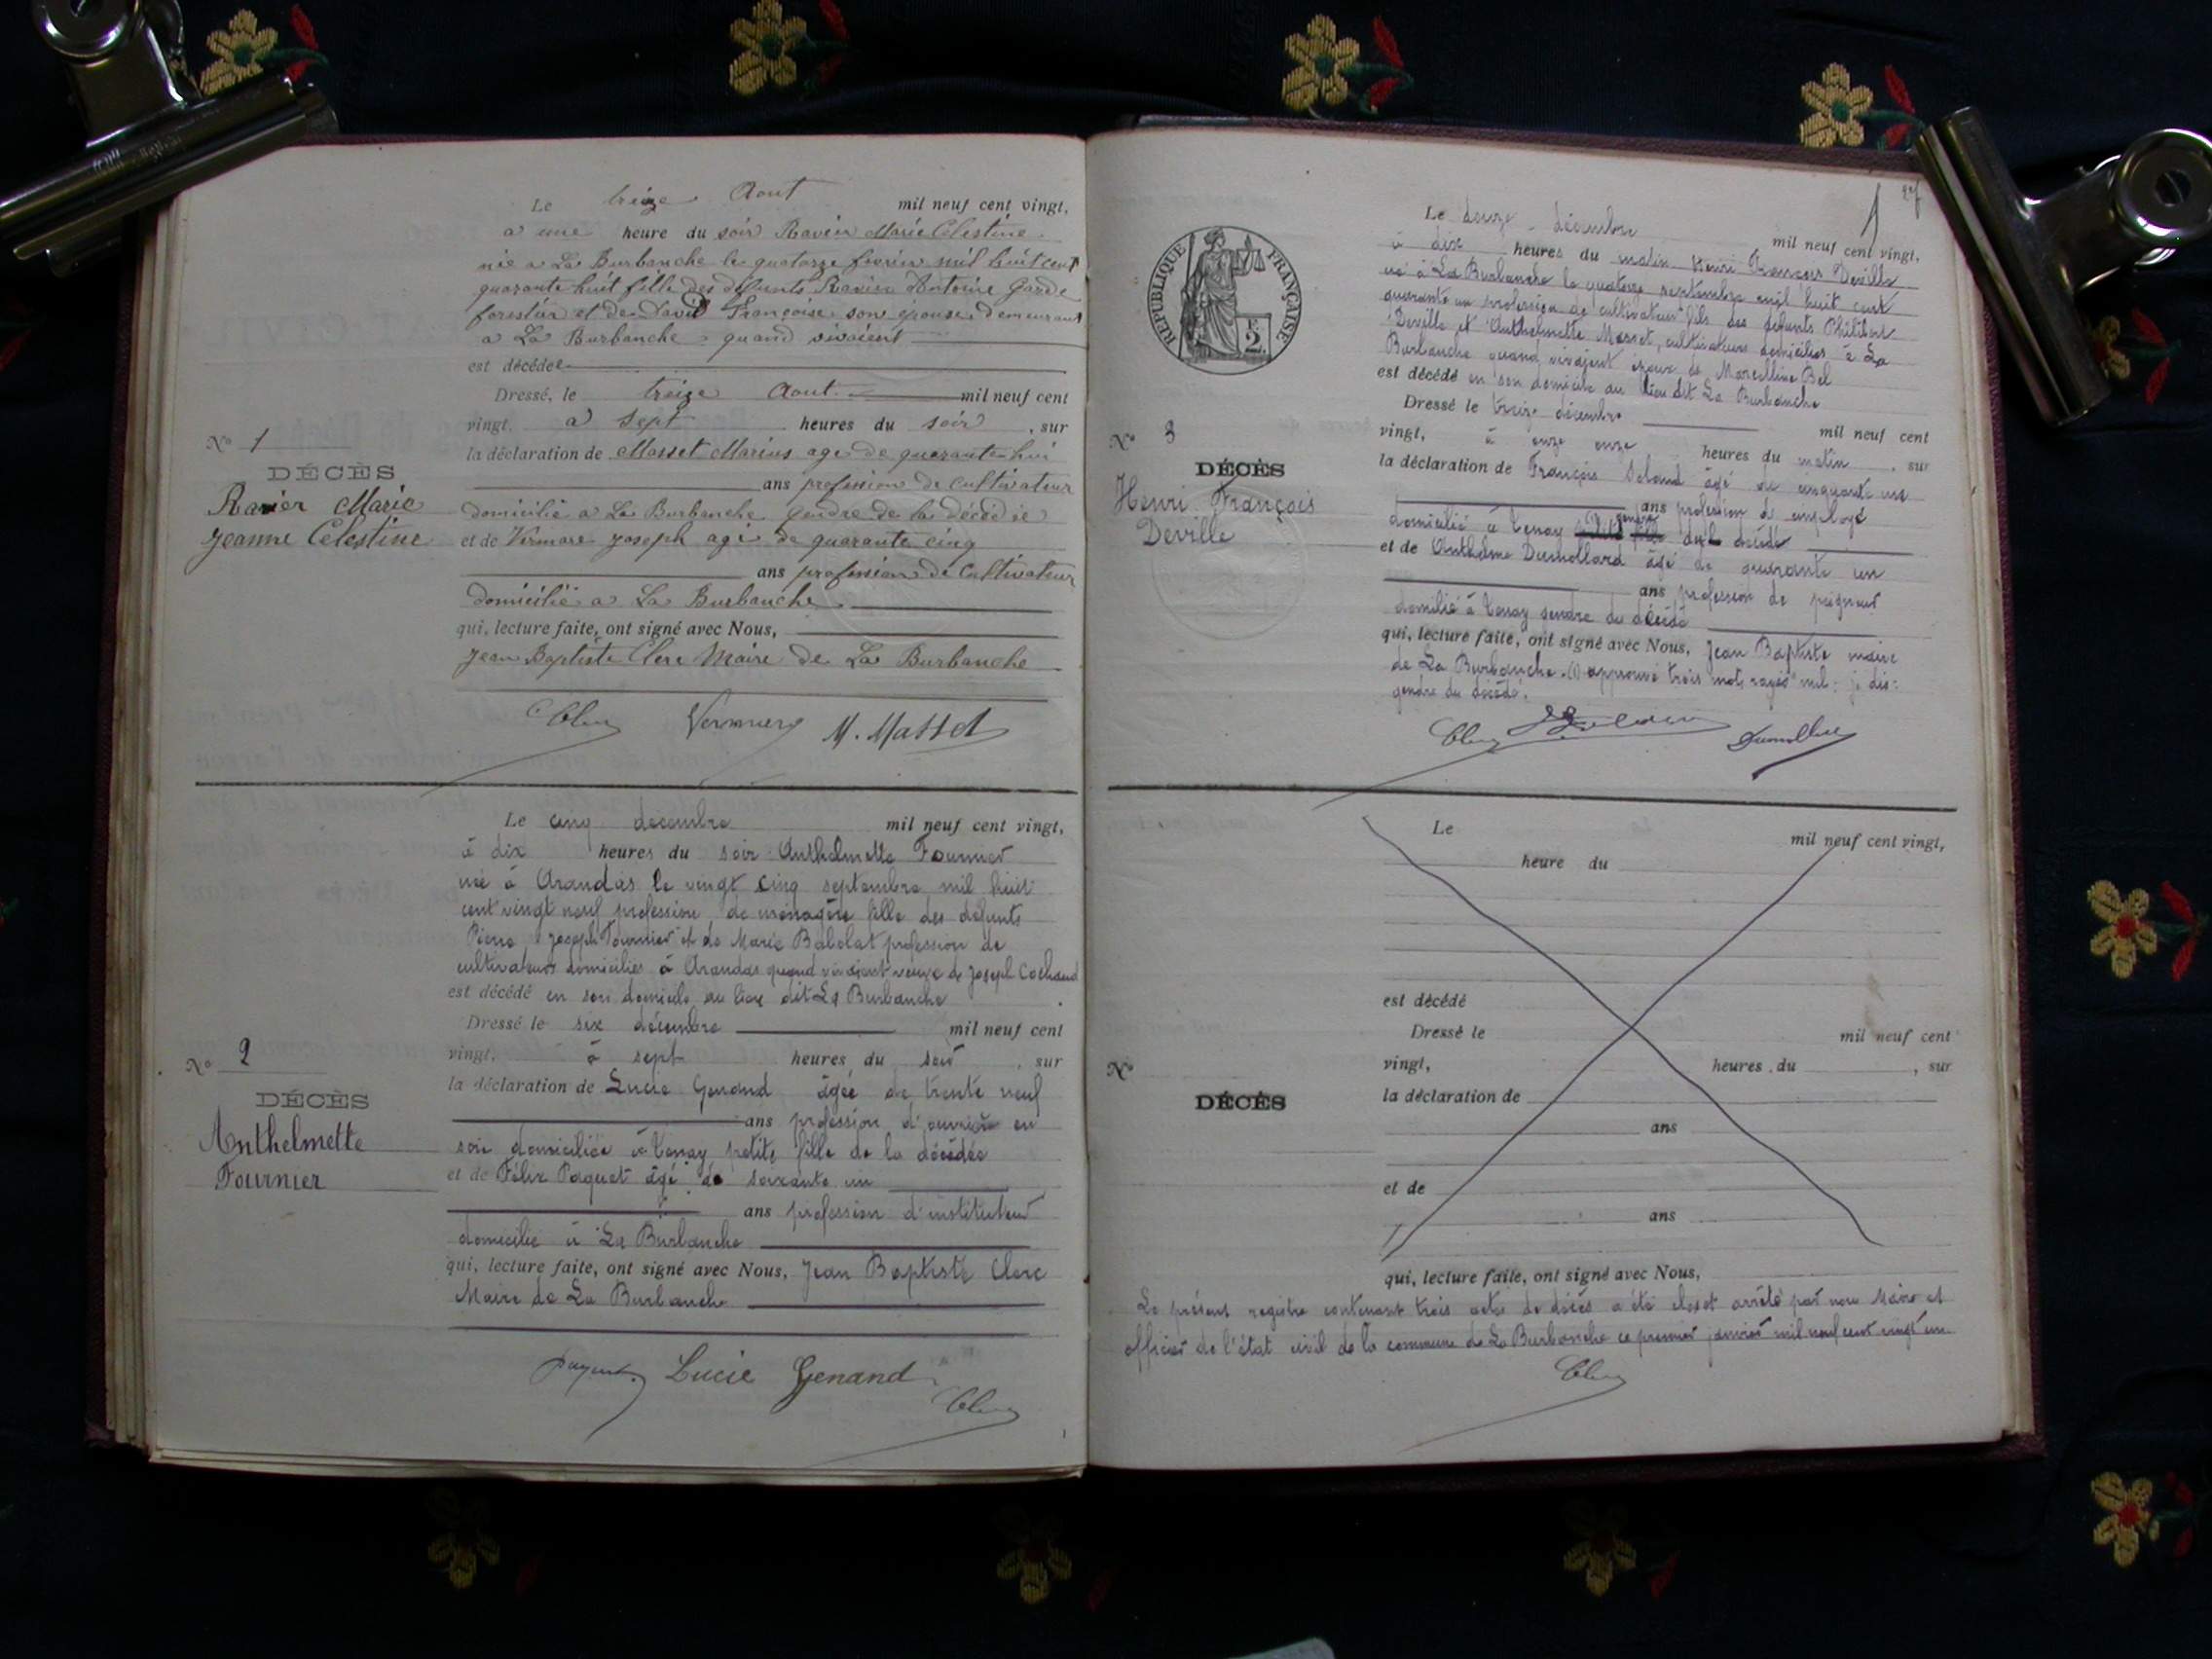 Le treize Aout mil neuf cent vingt,
a une heure du soir Ravier Marie Célestine
née a La Burbanche le quatorze février mil huit cent
quarante huit fille des défunts Ravier Antoine garde
forestier et de David Françoise son épouse demeurant
a La Burbanche quand vivaient
est décédée
Dressé, le treize Aout mil neuf cent
vingt, a sept heures du soir, sur
la déclaration de Masset Marius age de quarante huit
ans profession de cultivateur
domicilié a La Burbanche gendre de la décédée
et de Vermare Joseph agé de quarante cinq
ans profession de cultivateur
domicilié a La Burbanche
qui, lecture faite, ont signé avec Nous,
Jean Baptiste Clerc Maire de La Burbanche
M. Masset
No 1
DÉCÈS
Ravier Marie
Jeanne Célestine
Le cinq décembre mil neuf cent vingt,
à dix heures du soir Anthelmette Fournier
née à Arandas le vingt cinq septembre mil huit
cent vingt neuf profession de ménagère fille des défunts
Pierre Joseph Fournier et de Marie Babolat profession de
cultivateurs domiciliés à Arandas quand vivaient veuve de Joseph Cochaud
est décédé en son domicile au lieu dit La Burbanche
Dressé le six décembre mil neuf cent
vingt, à sept heures du soir, sur
la déclaration de Lucie Genand âgée de trente neuf
ans profession d'ouvrière en
soie domiciliée à Tenay petite fille de la décédée
et de Félix Paquet âgé de soixante un
ans profession d'instituteur
domicilié à La Burbanche
qui, lecture faite, ont signé avec Nous, Jean Baptiste Clerc
Maire de La Burbanche
Lucie Genand
No 2
DÉCÈS
Anthelmette
Fournier
1
27
REPUBLIQUE FRANÇAISE
2F.
Le douze décembre mil neuf cent vingt,
à dix heures du matin Henri François Deville
né à La Burbanche le quatorze septembre mil huit cent
quarante un profession de cultivateur fils des défunts Philibert
Deville et Anthelmette Masset, cultivateurs domiciliés à La
Burbanche quand vivaient époux de Marcelline Bel
est décédé en son domicile au lieu dit La Burbanche
Dressé le treize décembre mil neuf cent
vingt, à onze onze heures du matin, sur
la déclaration de François âgé de cinquante un
ans profession d'employé
domicilié à Tenay (1) gendre du décédé
et de Anthelme Dumollard âgé de quarante un
ans profession de peigneur
domilié à Tenay gendre du décédé
qui, lecture faite, ont signé avec Nous, Jean Baptiste maire
de La Burbanche. (1) approuvé trois mots rayés nul: je dis:
gendre du décédé.
No 3
DÉCÈS
Henri François
Deville
Le mil neuf cent vingt,
heure du
est décédé
Dressé le mil neuf cent
vingt, heures du, sur
la déclaration de
ans
et de
ans
qui, lecture faite, ont signé avec Nous,
No
DÉCÈS
Le présent registre contenant trois actes de décès a été clos et arrêté par nous Maire et
officier de l'état civil de la commune de La Burbanche ce premier janvier mil neuf cent vingt un